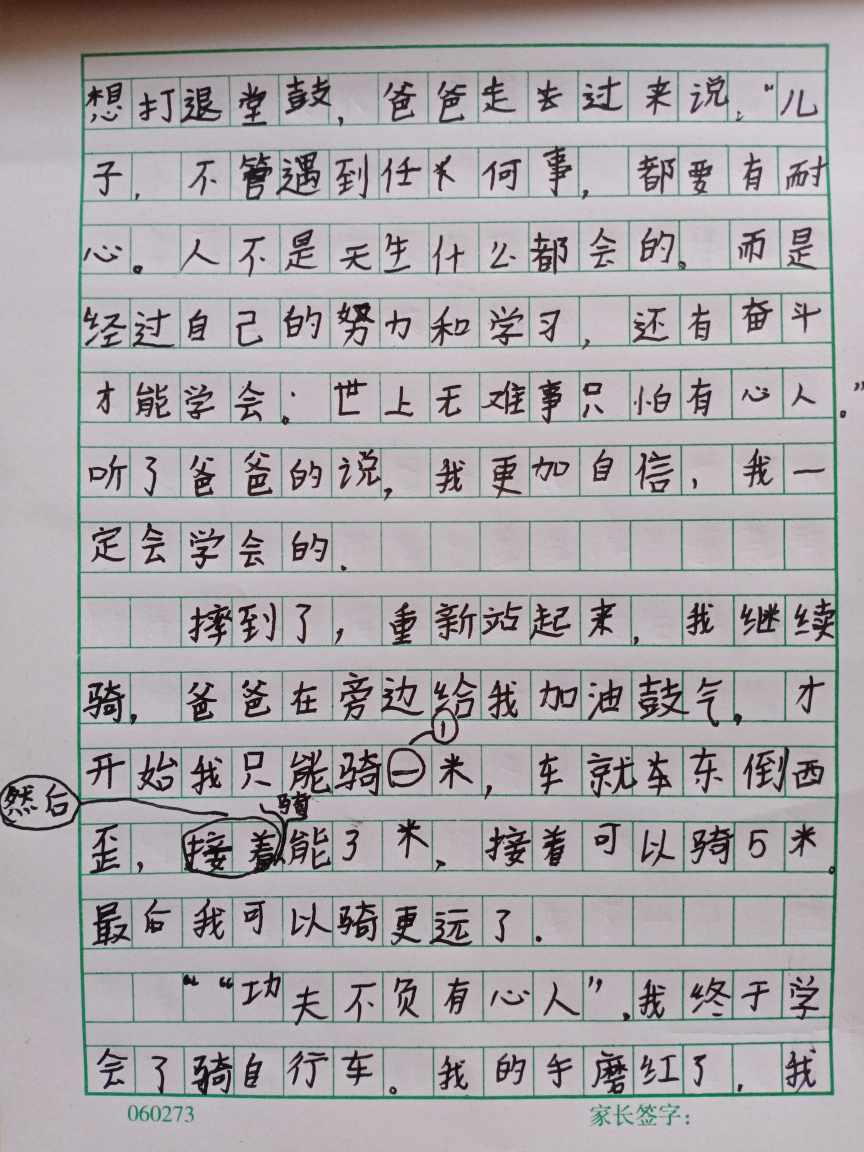 想打退堂鼓，爸爸走去过来说："儿
子，不管遇到任何事，都要有耐
心。人不是天生什么都会的。而是
经过自己的努力和学习，还有奋斗
才能学会：世上无难事只怕有心人。"
听了爸爸的说，我更加自信，我一
定会学会的.
摔到了，重新站起来，我继续
骑，爸爸在旁边给我加油鼓气，才
①
开始我只能骑一米，车就车东倒西
然后
骑
歪，接着能3米，接着可以骑5米。
最后我可以骑更远了.
"“功夫不负有心人”，我终于学
会了骑自行车。我的手磨红了，我
060273 家长签字：